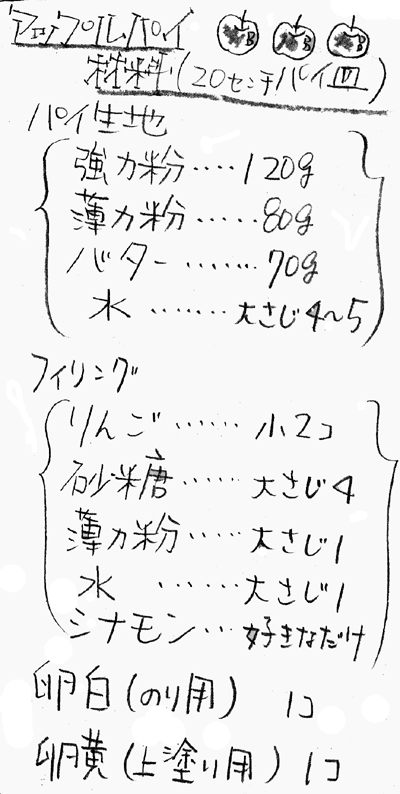 アップルパイ
材料(20センチパイ皿)
パイ生地
強力粉····120g
薄力粉·····80g
バター·······70g
水········大さじ4~5
フィリング
りんご······小2コ
砂糖······大さじ4
薄力粉·····大さじ1
水 ······大さじ1
シナモン···好きなだけ
卵白(のり用) 1コ
卵黄(上塗り用)1コ